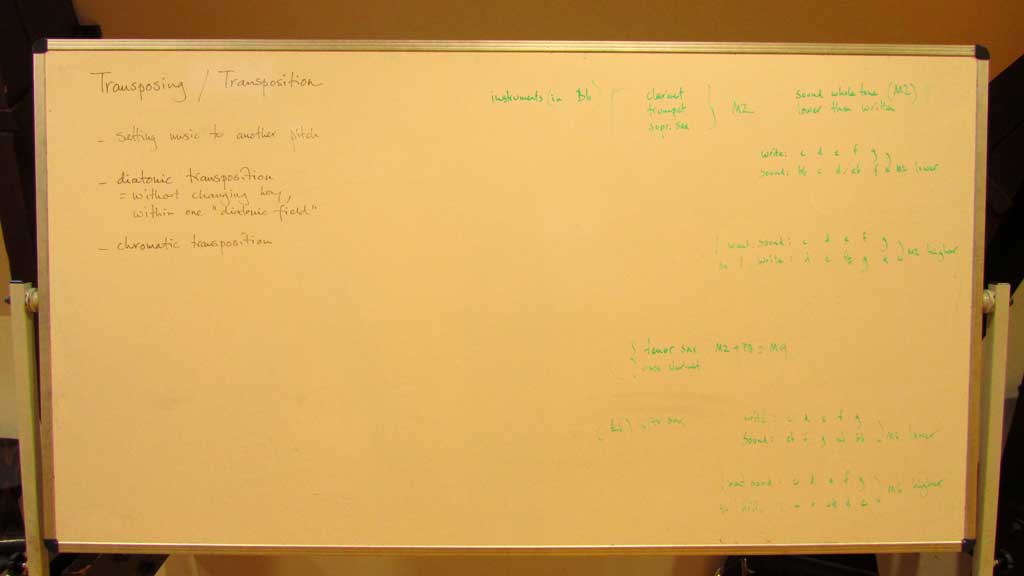 Transposing / Transposition
- setting music to another pitch
- diatonic transposition
= without changing key,
within one "diatonic field"
- chromatic transposition
instruments (in Bb)
clarinet
trumpet
sopr. sax
M2
sound whole tone (M2)
lower than written
write: c d e f g
sound: bb c d eb f M2 lower
want sound: c d e f g
so I write: d e f# g a M2 higher
tenor sax M2 + P8 = M9
bass clarinet
sax
write: c d e f g
sound: eb f g ab bb M6 lower
want sound: c d e f g
M6 higher